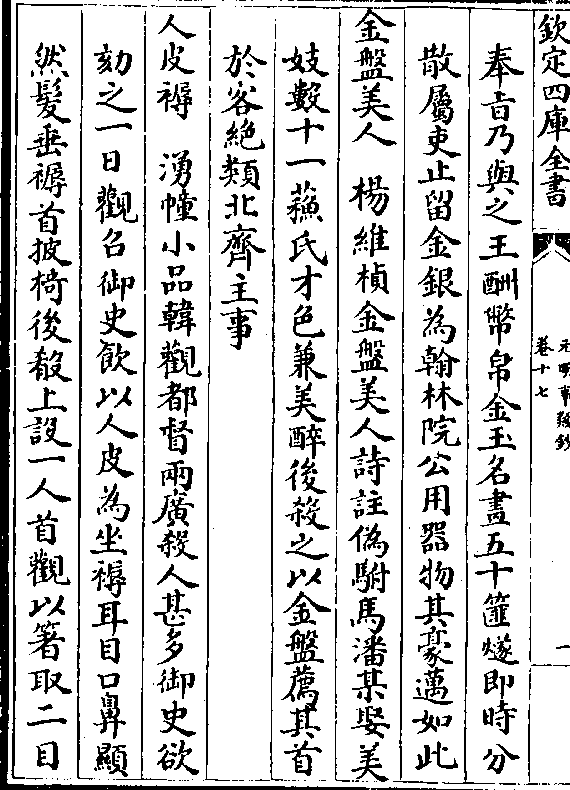 欽定四庫全書
元明事類鈔
卷十七
一
奉旨乃與之王酬幣帛金玉名畫五十篚燧即時分
散屬吏止留金銀為翰林院公用器物其豪邁如此
金盤美人　楊維楨金盤美人詩註偽駙馬潘某娶美
妓數十一蘓氏才色兼美醉後殺之以金盤薦其首
於客絶類北齊主事
人皮褥　湧幢小品韓觀都督兩廣殺人甚多御史欲
劾之一日觀召御史飲以人皮為坐褥耳目口鼻顯
然髮垂褥首披椅後殽上設一人首觀以箸取二目